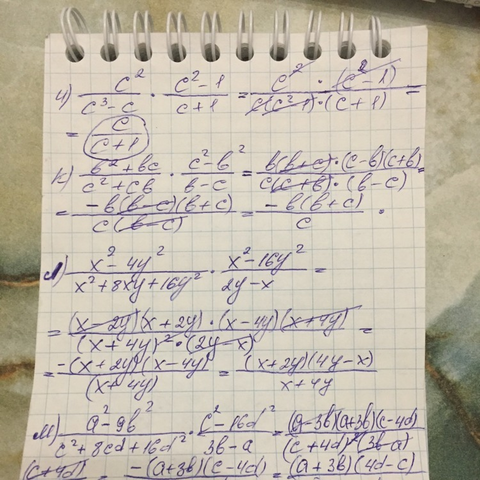 и) c²/(c³-c) · (c²-1)/(c+1) = c² · (c²-1)/(c(c²-1) · (c+1)) =
= c/(c+1)
к) (b²+bc)/(c²+cb) · (c²-b²)/(b-c) = b(b+c) · (c-b)(c+b)/(c(c+b) · (b-c)) =
= -b(b-c)(b+c)/(c(b-c)) = -b(b+c)/c .
л) (x²-4y²)/(x²+8xy+16y²) · (x²-16y²)/(2y-x) =
= (x-2y)(x+2y) · (x-4y)(x+4y)/((x+4y)² · (2y-x)) =
= -(x+2y)(x-4y)/(x+4y) = (x+2y)(4y-x)/(x+4y)
м) (a²-9b²)/(c²+8cd+16d²) · (c²-16d²)/(3b-a) = (a-3b)(a+3b)(c-4d)/((c+4d)²(3b-a)
(c+4d) = -(a+3b)(c-4d) = (a+3b)(4d-c)